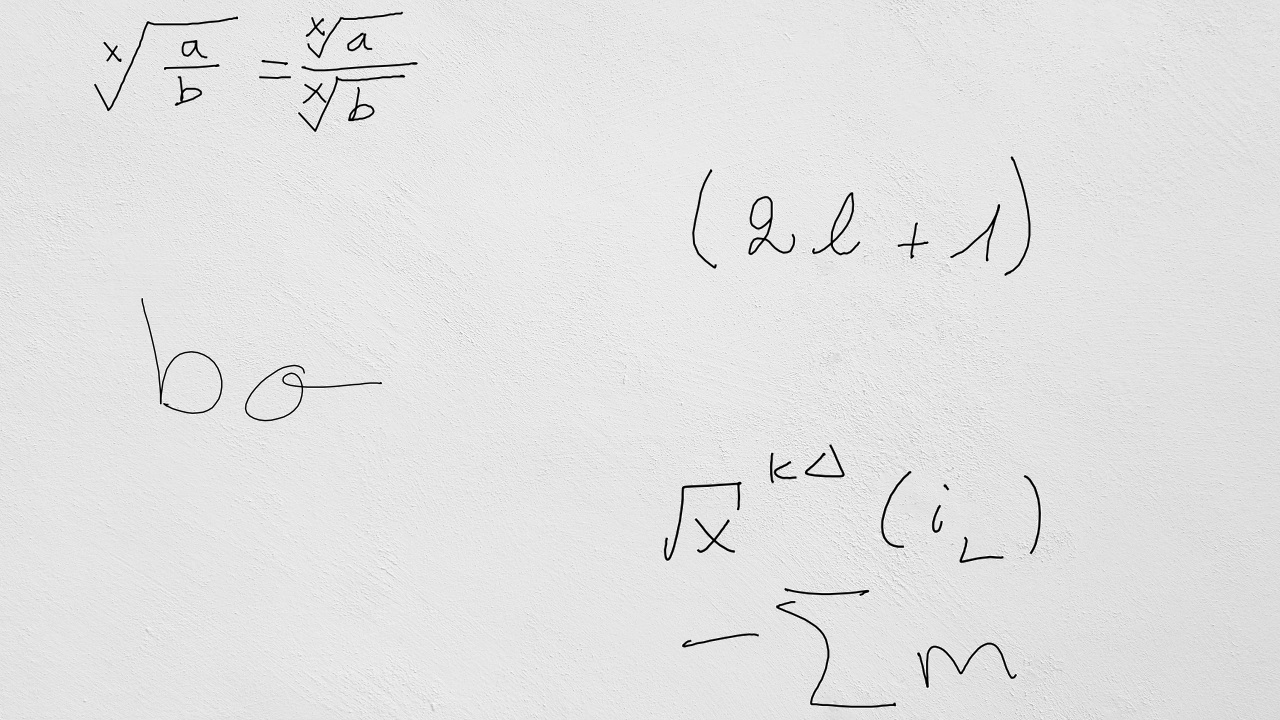 $\sqrt[x]{\frac{a}{b}} = \frac{\sqrt[x]{a}}{\sqrt[x]{b}}$
$(2l+1)$
$b\sigma$
$\sqrt{x}^{k\Delta}(i_L)$
$-\sum m$